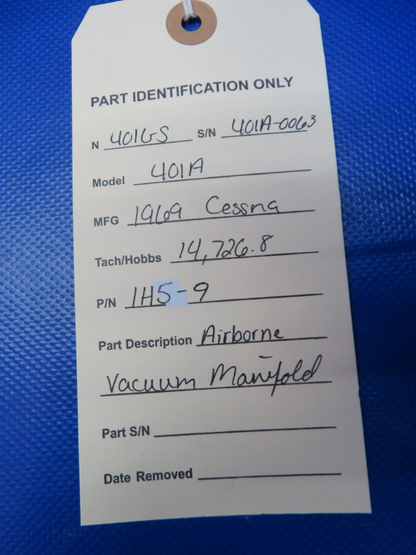 PART IDENTIFICATION ONLY
N 401GS S/N 401A-0063
Model 401A
MFG 1969 Cessna
Tach/Hobbs 14,726.8
P/N 1H5-9
Part Description Airborne
Vacuum Manifold
Part S/N
Date Removed